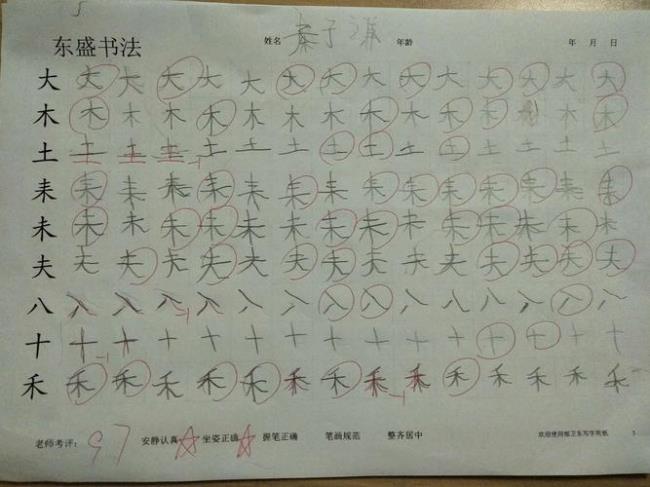 东盛书法 姓名 秦子谦 年龄 年 月 日
大 大 大 大 大 大 大 大 大 大 大 大 大 大 大
木 木 木 木 木 木 木 木 木 木 木 木 木 木 木
土 土 土 土 土 土 土 土 土 土 土 土 土 土 土
耒 耒 耒 耒 耒 耒 耒 耒 耒 耒 耒 耒 耒 耒 耒
未 未 未 未 未 未 未 未 未 未 未 未 未 未 未
夫 夫 夫 夫 夫 夫 夫 夫 夫 夫 夫 夫 夫 夫 夫
八 八 八 八 八 八 八 八 八 八 八 八 八 八 八
十 十 十 十 十 十 十 十 十 十 十 十 十 十 十
禾 禾 禾 禾 禾 禾 禾 禾 禾 禾 禾 禾 禾 禾 禾
老师考评： 97 安静认真 坐姿正确 握笔正确 笔画规范 整齐居中